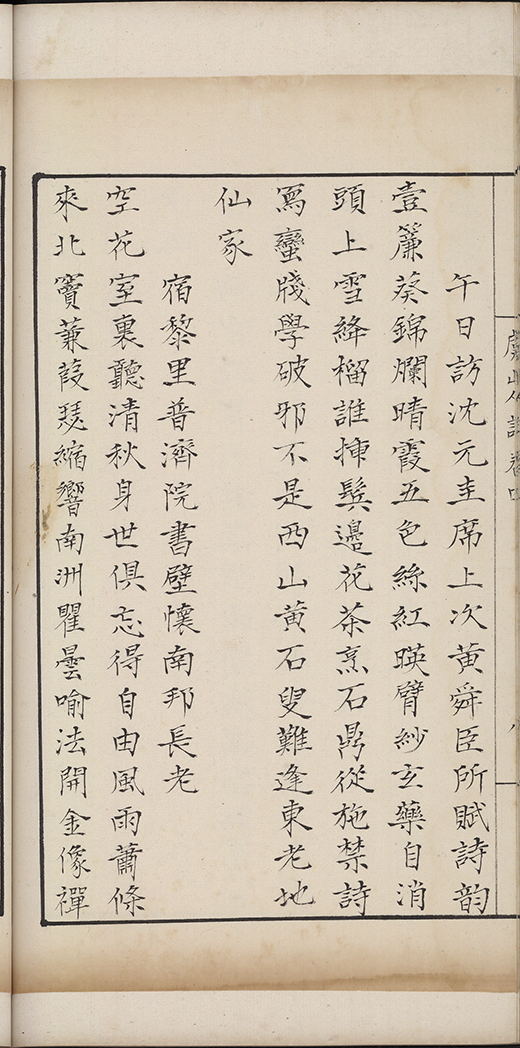 午日訪沈元圭席上次黄舜臣所賦詩韵
壹簾葵錦爛晴霞五色絲紅暎臂紗玄藥自消
頭上雪絳榴誰揷鬓邊花茶烹石鼎從施禁詩
寫蠻牋學破邪不是西山黄石叟難逢東老地
仙家
宿黎里普濟院書壁懷南邦長老
空花室裏聽清秋身世俱忘得自由風雨蕭條
來北竇蒹葭瑟縮響南洲瞿曇喻法開金像禪